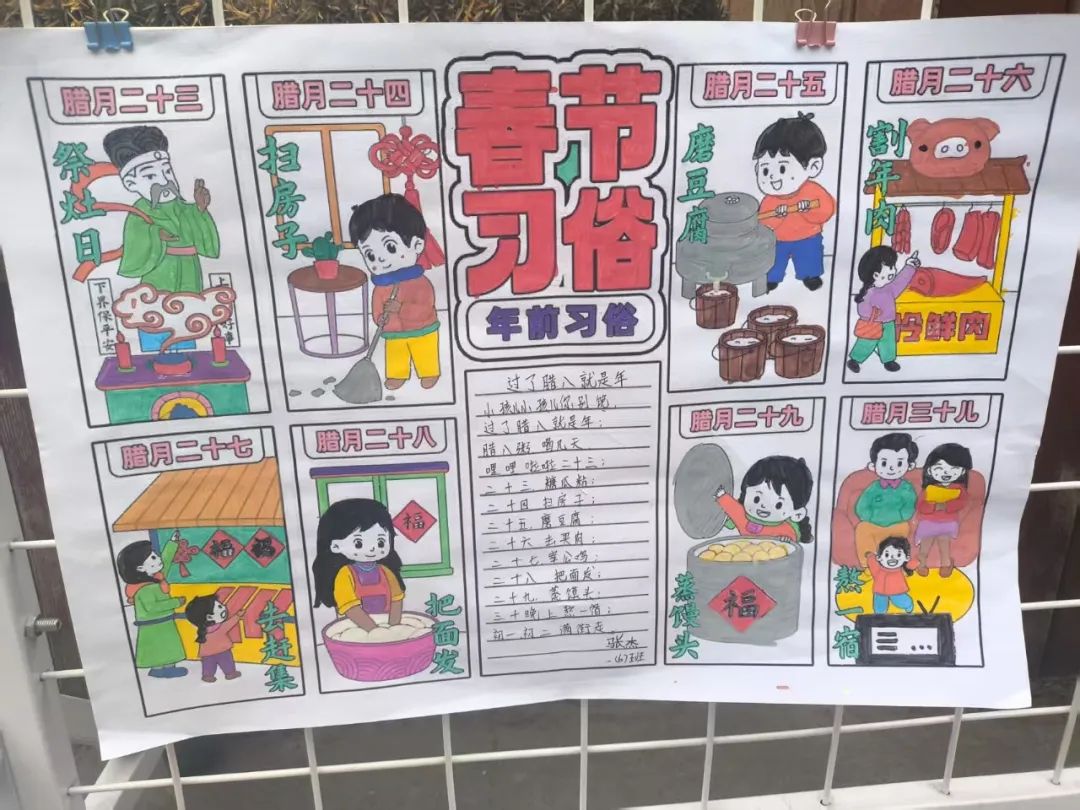 春节
习俗
年前习俗
腊月二十三
祭灶日
下界保平安
腊月二十四
扫房子
腊月二十五
磨豆腐
腊月二十六
割年肉
鲜肉
腊月二十七
福 福
去赶集
腊月二十八
福
把面发
过了腊八就是年
小孩儿小孩儿你别馋，
过了腊八就是年；
腊八粥 喝几天
哩哩啦啦二十三；
二十三 糖瓜粘；
二十四 扫房子；
二十五 磨豆腐；
二十六 去买肉；
二十七 宰公鸡；
二十八 把面发；
二十九 蒸馒头；
三十晚上熬一宿；
初一初二满街走
张杰
一(6)班
腊月二十九
福
蒸馒头
腊月三十儿
熬一宿